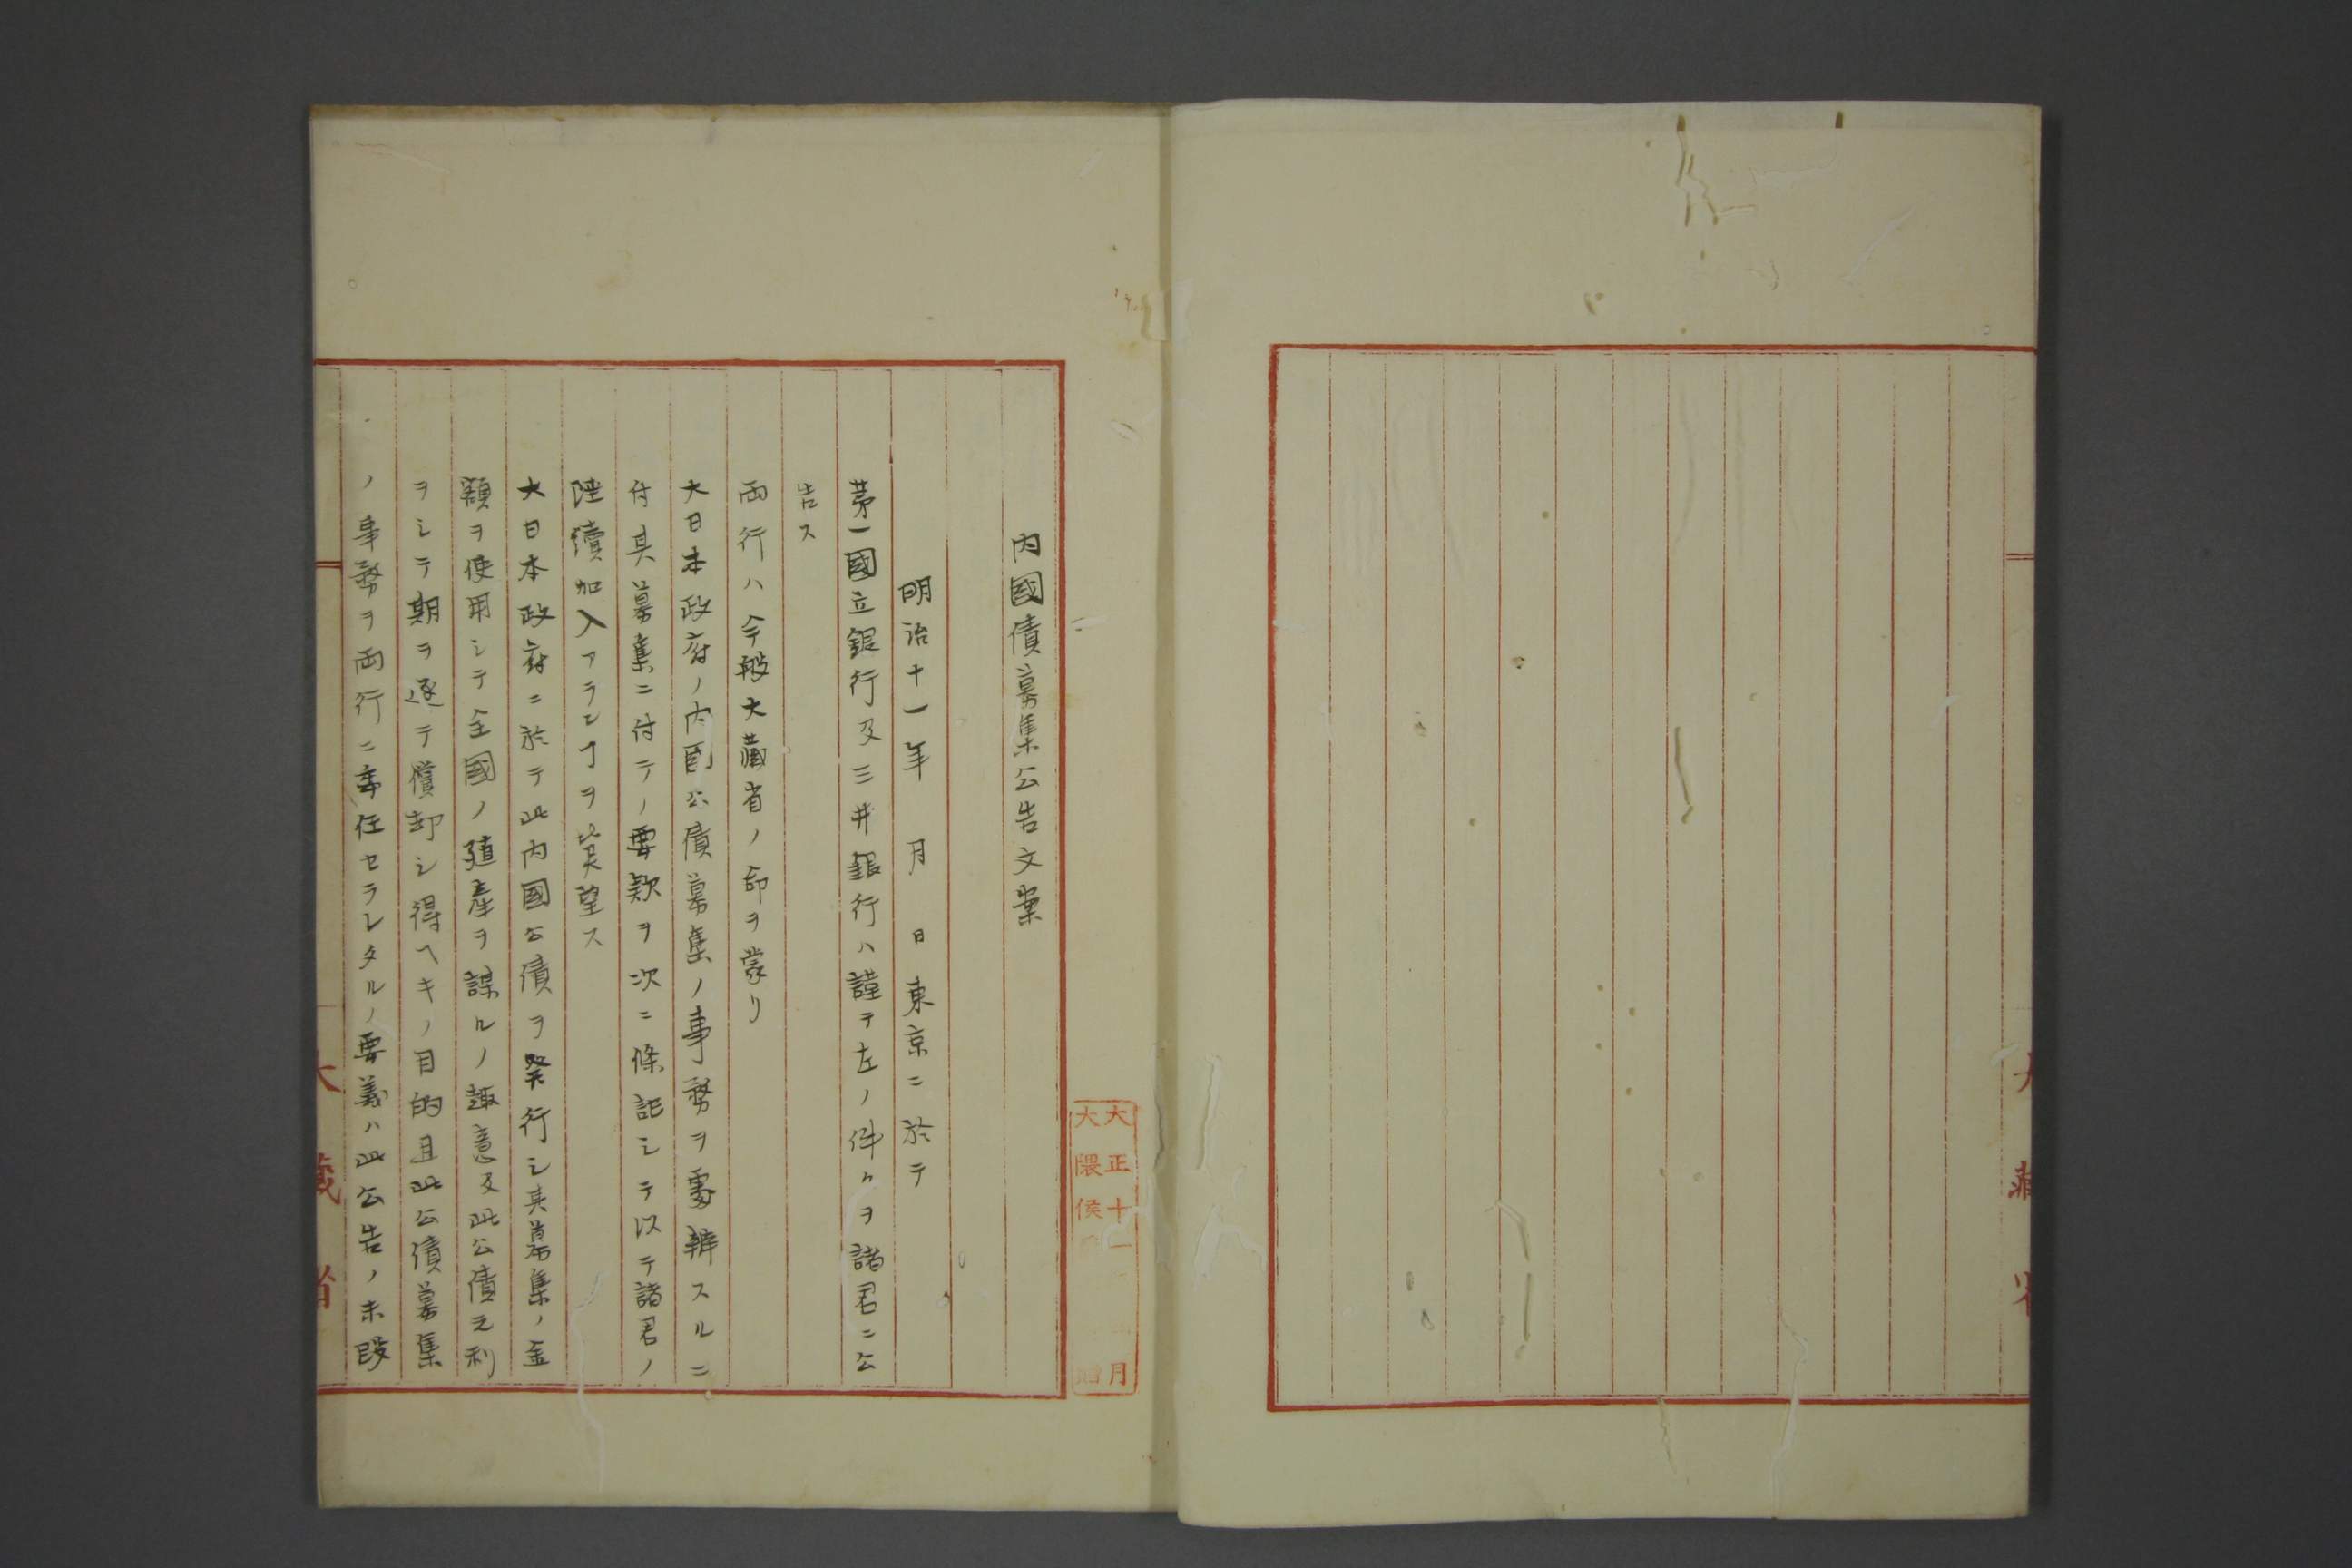 大藏省
大正十一
月
大隈侯
贈
内國債募集公告文案
明治十一年 月 日東京ニ於テ
茅一國立銀行及三井銀行ハ謹テ左ノ件々ヲ諸君ニ公
告ス
両行ハ今般大藏省ノ命ヲ蒙リ
大日本政府ノ内国公債募集ノ事務ヲ處辨スルニ
付其募集ニ付テノ要款ヲ次ニ條記シテ以テ諸君ノ
陸續加入アランヿヲ兾望ス
大日本政府ニ於テ此内國公債ヲ発行シ其募集ノ金
額ヲ使用シテ全國ノ殖産ヲ謀ルノ趣意及此公債元利
ヲシテ期ヲ逐テ償却シ得ヘキノ目的且此公債募集
ノ事務ヲ両行ニ委任セラレタルノ要義ハ此公告ノ末段
大藏省